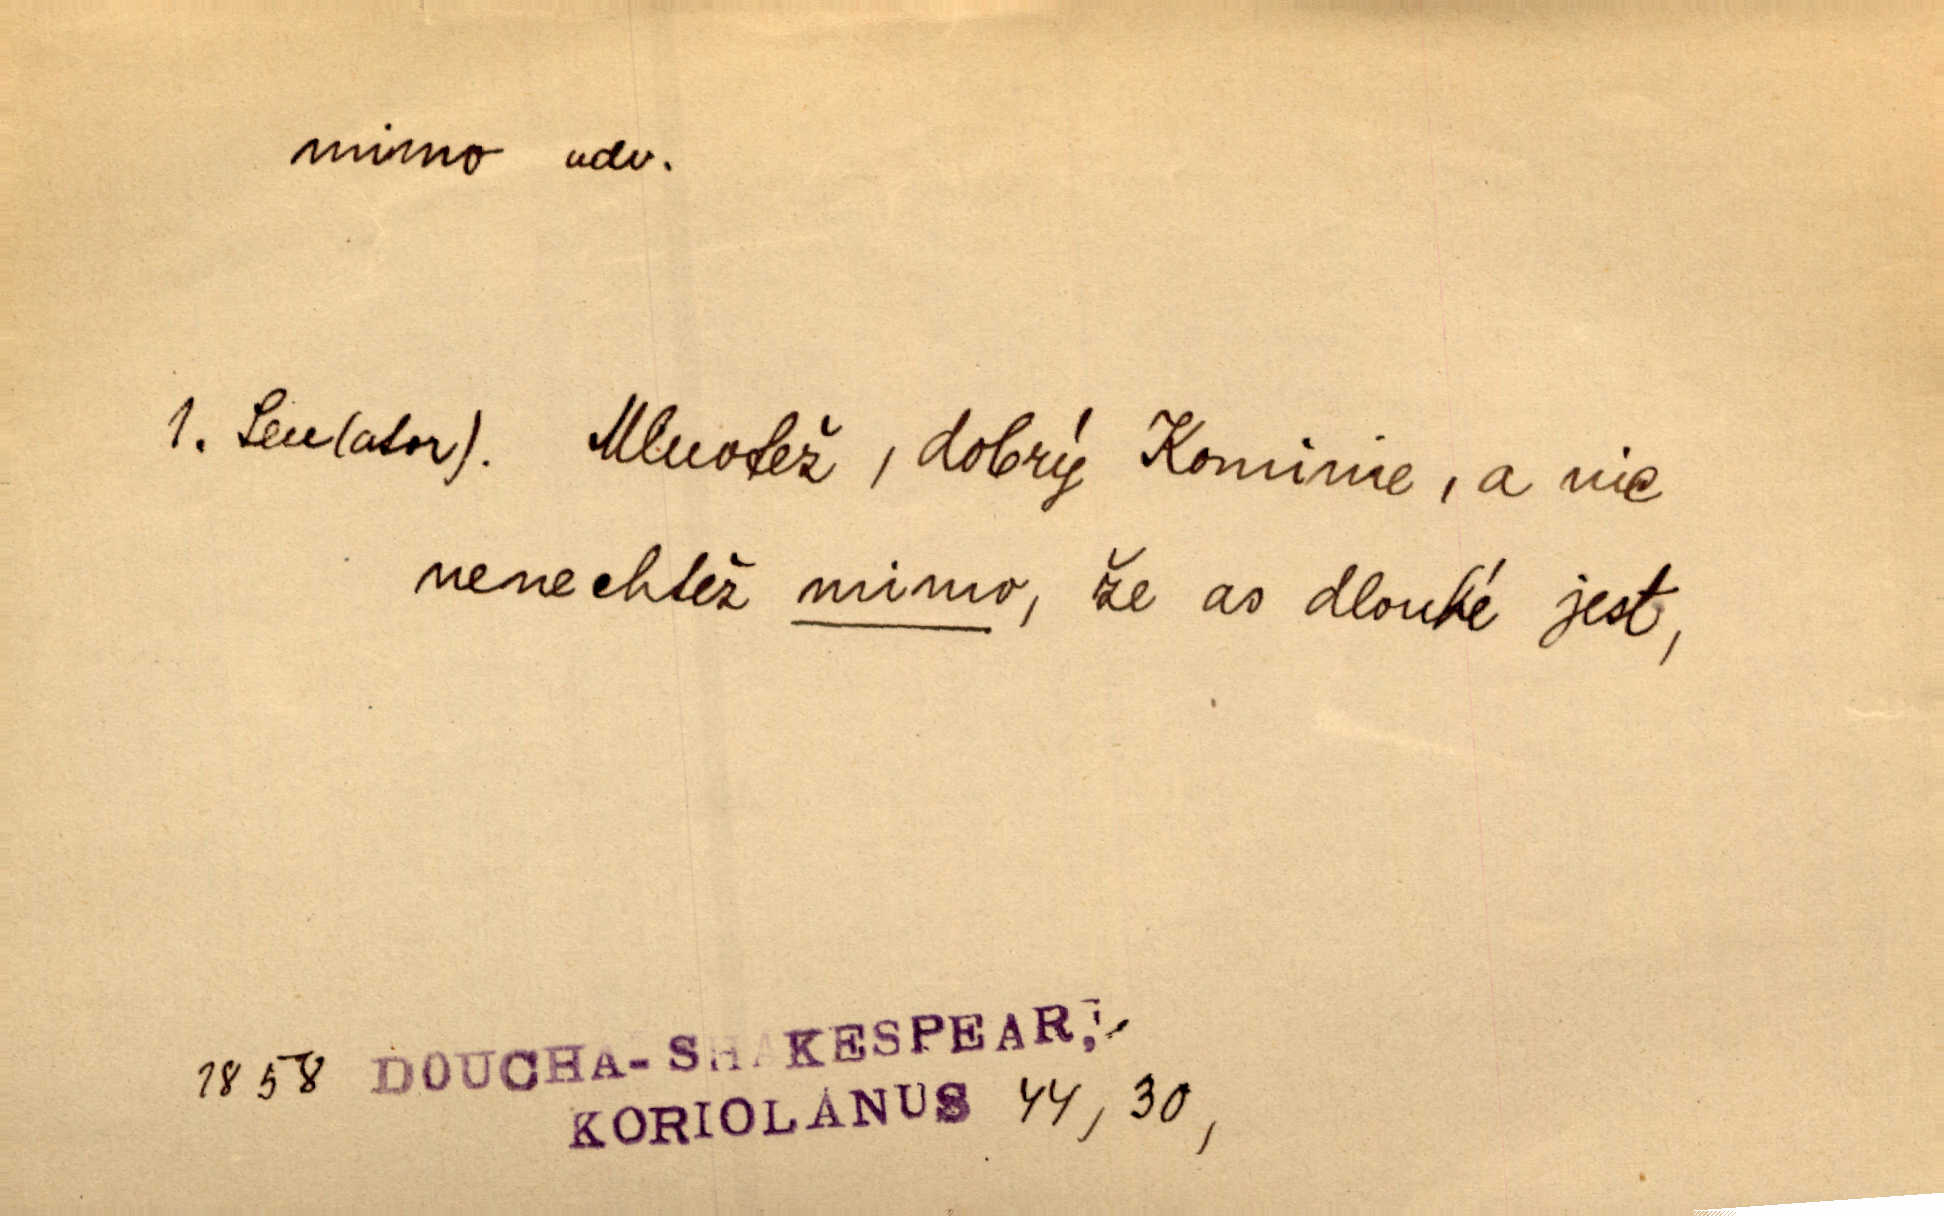 mimo adv.
1. Sen(ator). Mluvtež, dobrý Kominie, a nic
nenechtež mimo, že as dlouhé jest,
1858 DOUCHA-SHAKESPEAR,
KORIOLANUS 44, 30,